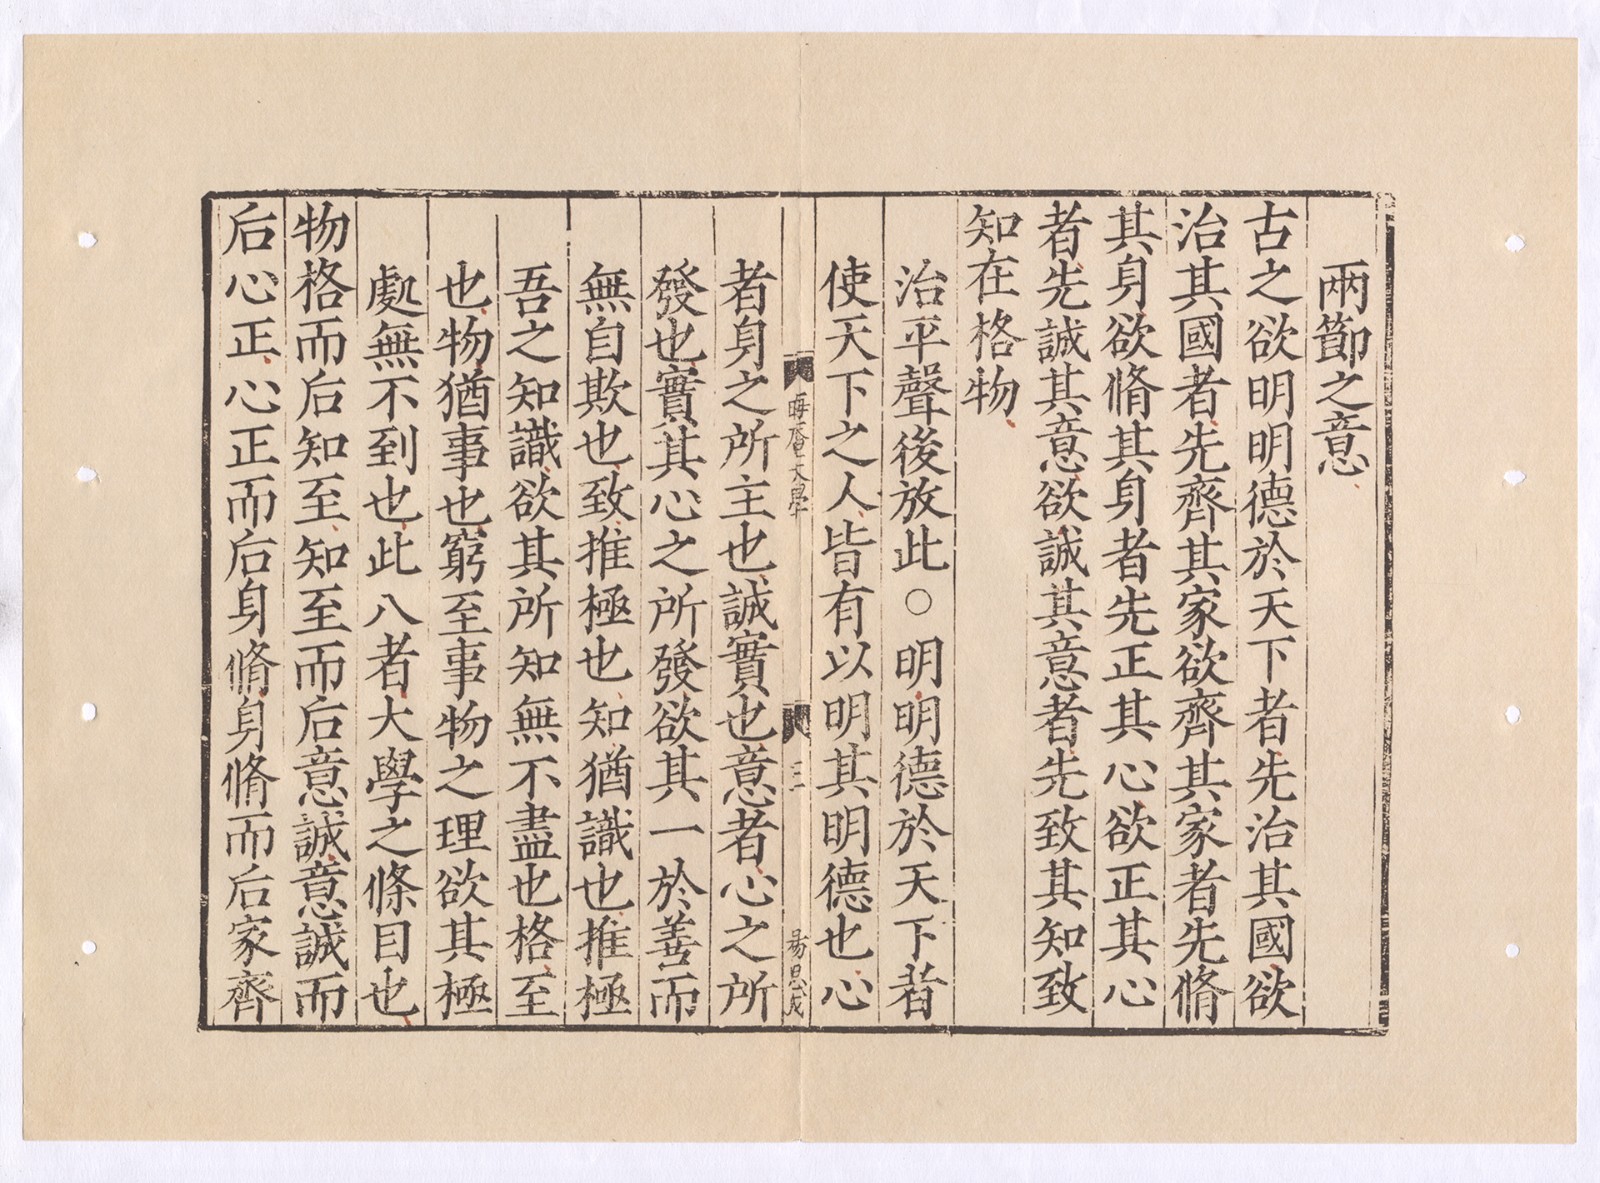 兩節之意
古之欲明明德於天下者先治其國欲
治其國者先齊其家欲齊其家者先脩
其身欲脩其身者先正其心欲正其心
者先誠其意欲誠其意者先致其知致
知在格物
治平聲後放此○明明德於天下者
使天下之人皆有以明其明德也心
晦庵大學
三
者身之所主也誠實也意者心之所
發也實其心之所發欲其一於善而
無自欺也致推極也知猶識也推極
吾之知識欲其所知無不盡也格至
也物猶事也窮至事物之理欲其極
處無不到也此八者大學之條目也
物格而后知至知至而后意誠意誠而
后心正心正而后身脩身脩而后家齊